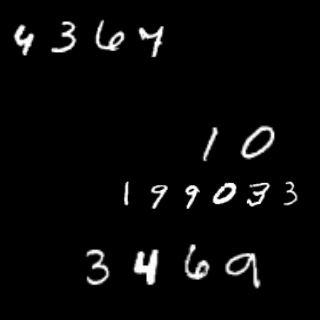 4367
10
199033
3469